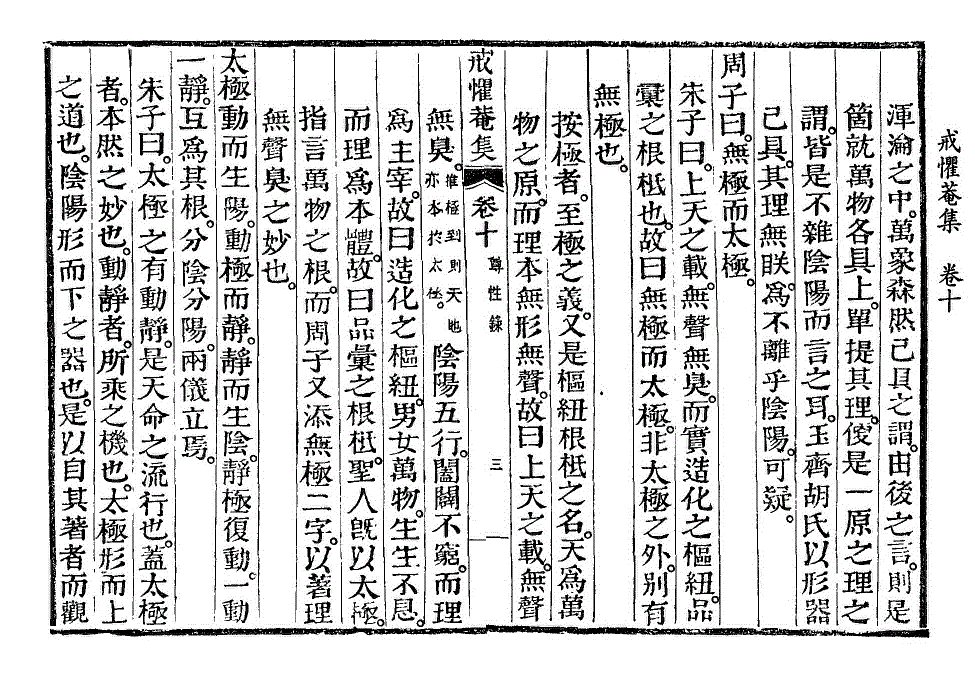 戒懼菴集　卷十
渾淪之中。萬象森然已具之謂。由後之言。則是
箇就萬物各具上。單提其理。俊是一原之理之
謂。皆是不雜陰陽而言之耳。玉齋胡氏以形器
已具。其理無眹。爲不離乎陰陽。可疑。
周子曰。無極而太極。
朱子曰。上天之載。無聲無臭。而實造化之樞紐。品
彙之根柢也。故曰無極而太極。非太極之外。別有
無極也。
按極者。至極之義。又是樞紐根柢之名。天爲萬
物之原。而理本無形無聲。故曰上天之載。無聲
戒懼菴集　卷十　尊性錄　三
無臭。推極到則天地亦本於太極。陰陽五行。闔闢不窮。而理
爲主宰。故曰造化之樞紐。男女萬物。生生不息。
而理爲本體。故曰品彙之根柢。聖人旣以太極。
指言萬物之根。而周子又添無極二字。以著理
無聲臭之妙也。
太極動而生陽。動極而靜。靜而生陰。靜極復動。一動
一靜。互爲其根。分陰分陽。兩儀立焉。
朱子曰。太極之有動靜。是天命之流行也。蓋太極
者。本然之妙也。動靜者。所乘之機也。太極形而上
之道也。陰陽形而下之器也。是以自其著者而觀